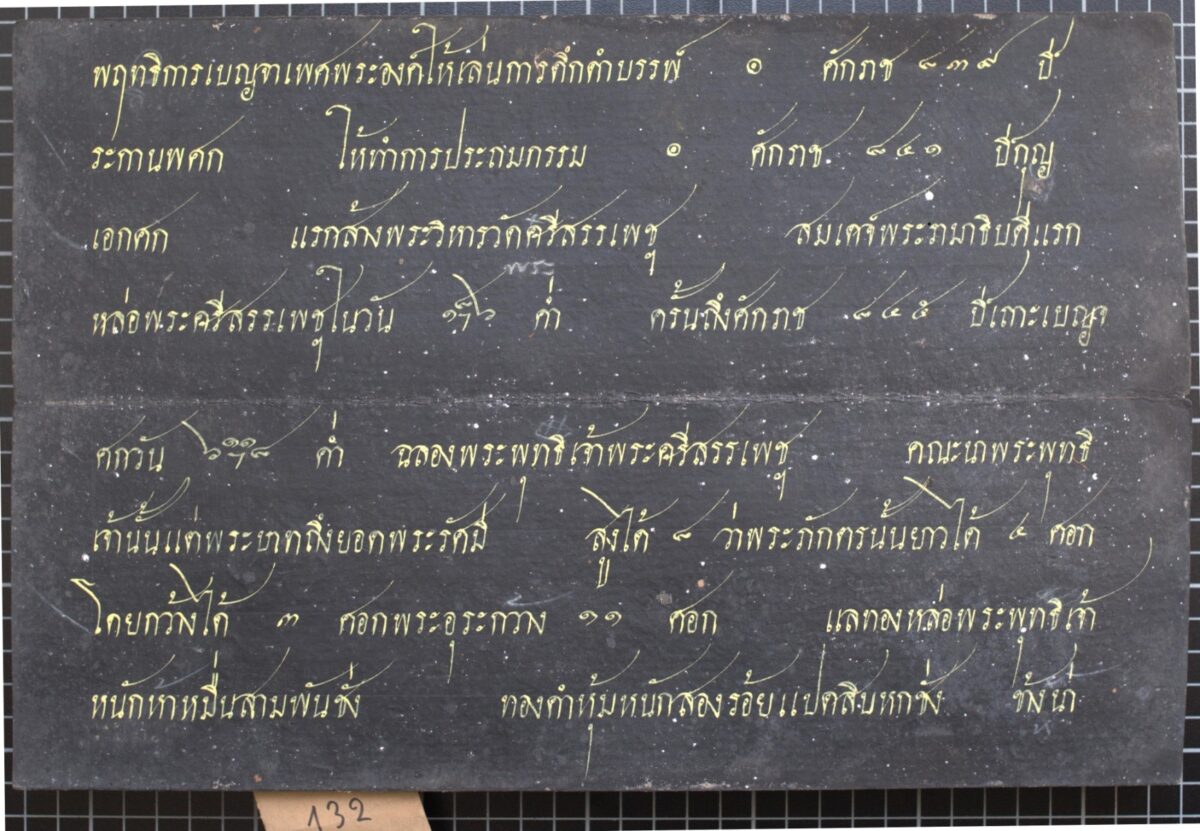 พฤทธิการเบญจาเพศพระองค์ให้เล่นการดึกดำบรรพ์ ๑ ศักราช ๘๓๙ ปี
ระกานพศก ให้ทำการประถมกรรม ๑ ศักราช ๘๔๑ ปีกุญ
เอกศก แรกส้างพระวิหารวัดศรีสรรเพชฺ สมเดจ์พระรามาธิบดีแรก
พระ
หล่อพระศรีสรรเพชฺในวัน ค่ำ ครั้นถึงศักราช ๘๔๕ ปีเถาะเบญจ
ศกวัน ค่ำ ฉลองพระพุทธิเจ้าพระศรีสรรเพชฺ คณะนาพระพุทธิ
เจ้านั้นแต่พระบาทถึงยอดพระรัศมี สูงได้ ๘ ว่าพระภักตรนั้นยาวได้ ๔ ศอก
โดยกว้างได้ ๓ ศอกพระอุระกวาง ๑๑ ศอก แลทองหล่อพระพุทธิเจ้า
หนักหาหมื่นสามพันชั่ง ทองคำหุ้มหนักสองร้อยแปดสิบหกชั่ง ข้างน่า
132